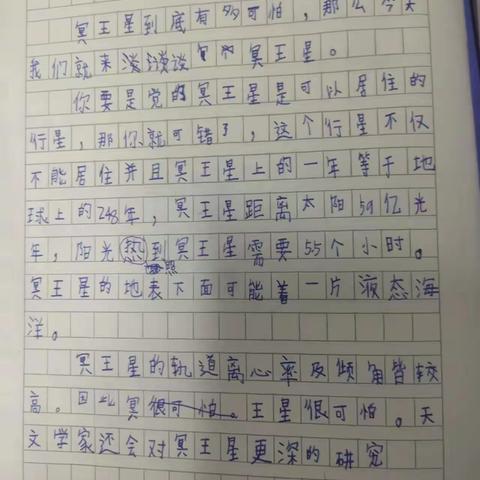 冥王星到底有多可怕，那么今天
我们就来谈谈冥王星。
你要是觉的冥王星是可以居住的
行星，那你就可错了，这个行星不仅
不能居住并且冥王星上的一年等于地
球上的248年，冥王星距离太阳59亿光
年，阳光照到冥王星需要5.5个小时。
冥王星的地表下面可能着一片液态海
洋。
冥王星的轨道离心率及倾角皆较
高。因此冥王星很可怕。天
文学家还会对冥王星更深的研究